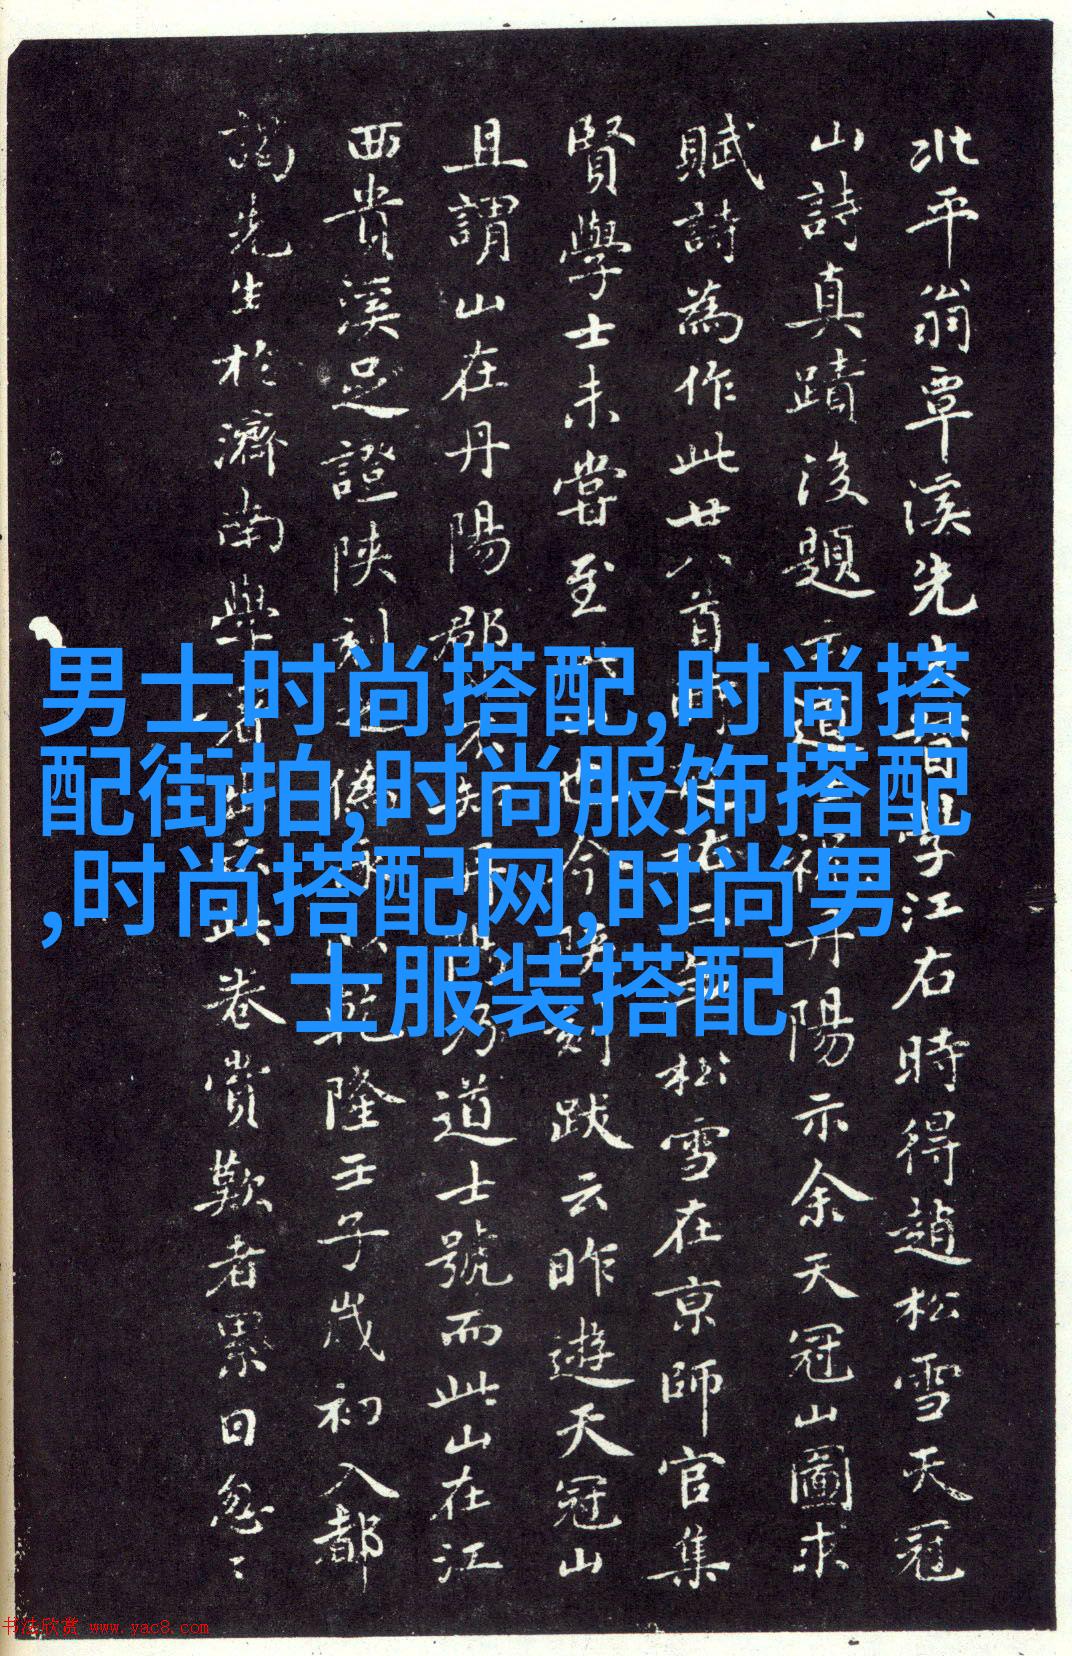 北平翁覃溪先生督學江右時得趙松雪天冠
山詩真蹟後題 道士祝丹陽示余天冠山圖求
賦詩為作此廿八首 延祐二年 松雪在京師官集
賢學士未嘗至 也今陝刻跋云昨遊天冠山
且謂山在丹陽郡 丹陽乃道士號而此山在江
西貴溪足證陝刻 偽 乾隆壬子歲初入都
謁先生於濟南學 此卷賞歎者累日忽〻
男士时尚搭配,时尚搭
配街拍,时尚服饰搭配
,时尚搭配网,时尚男
士服装搭配
书法欣赏 www.yac8.com